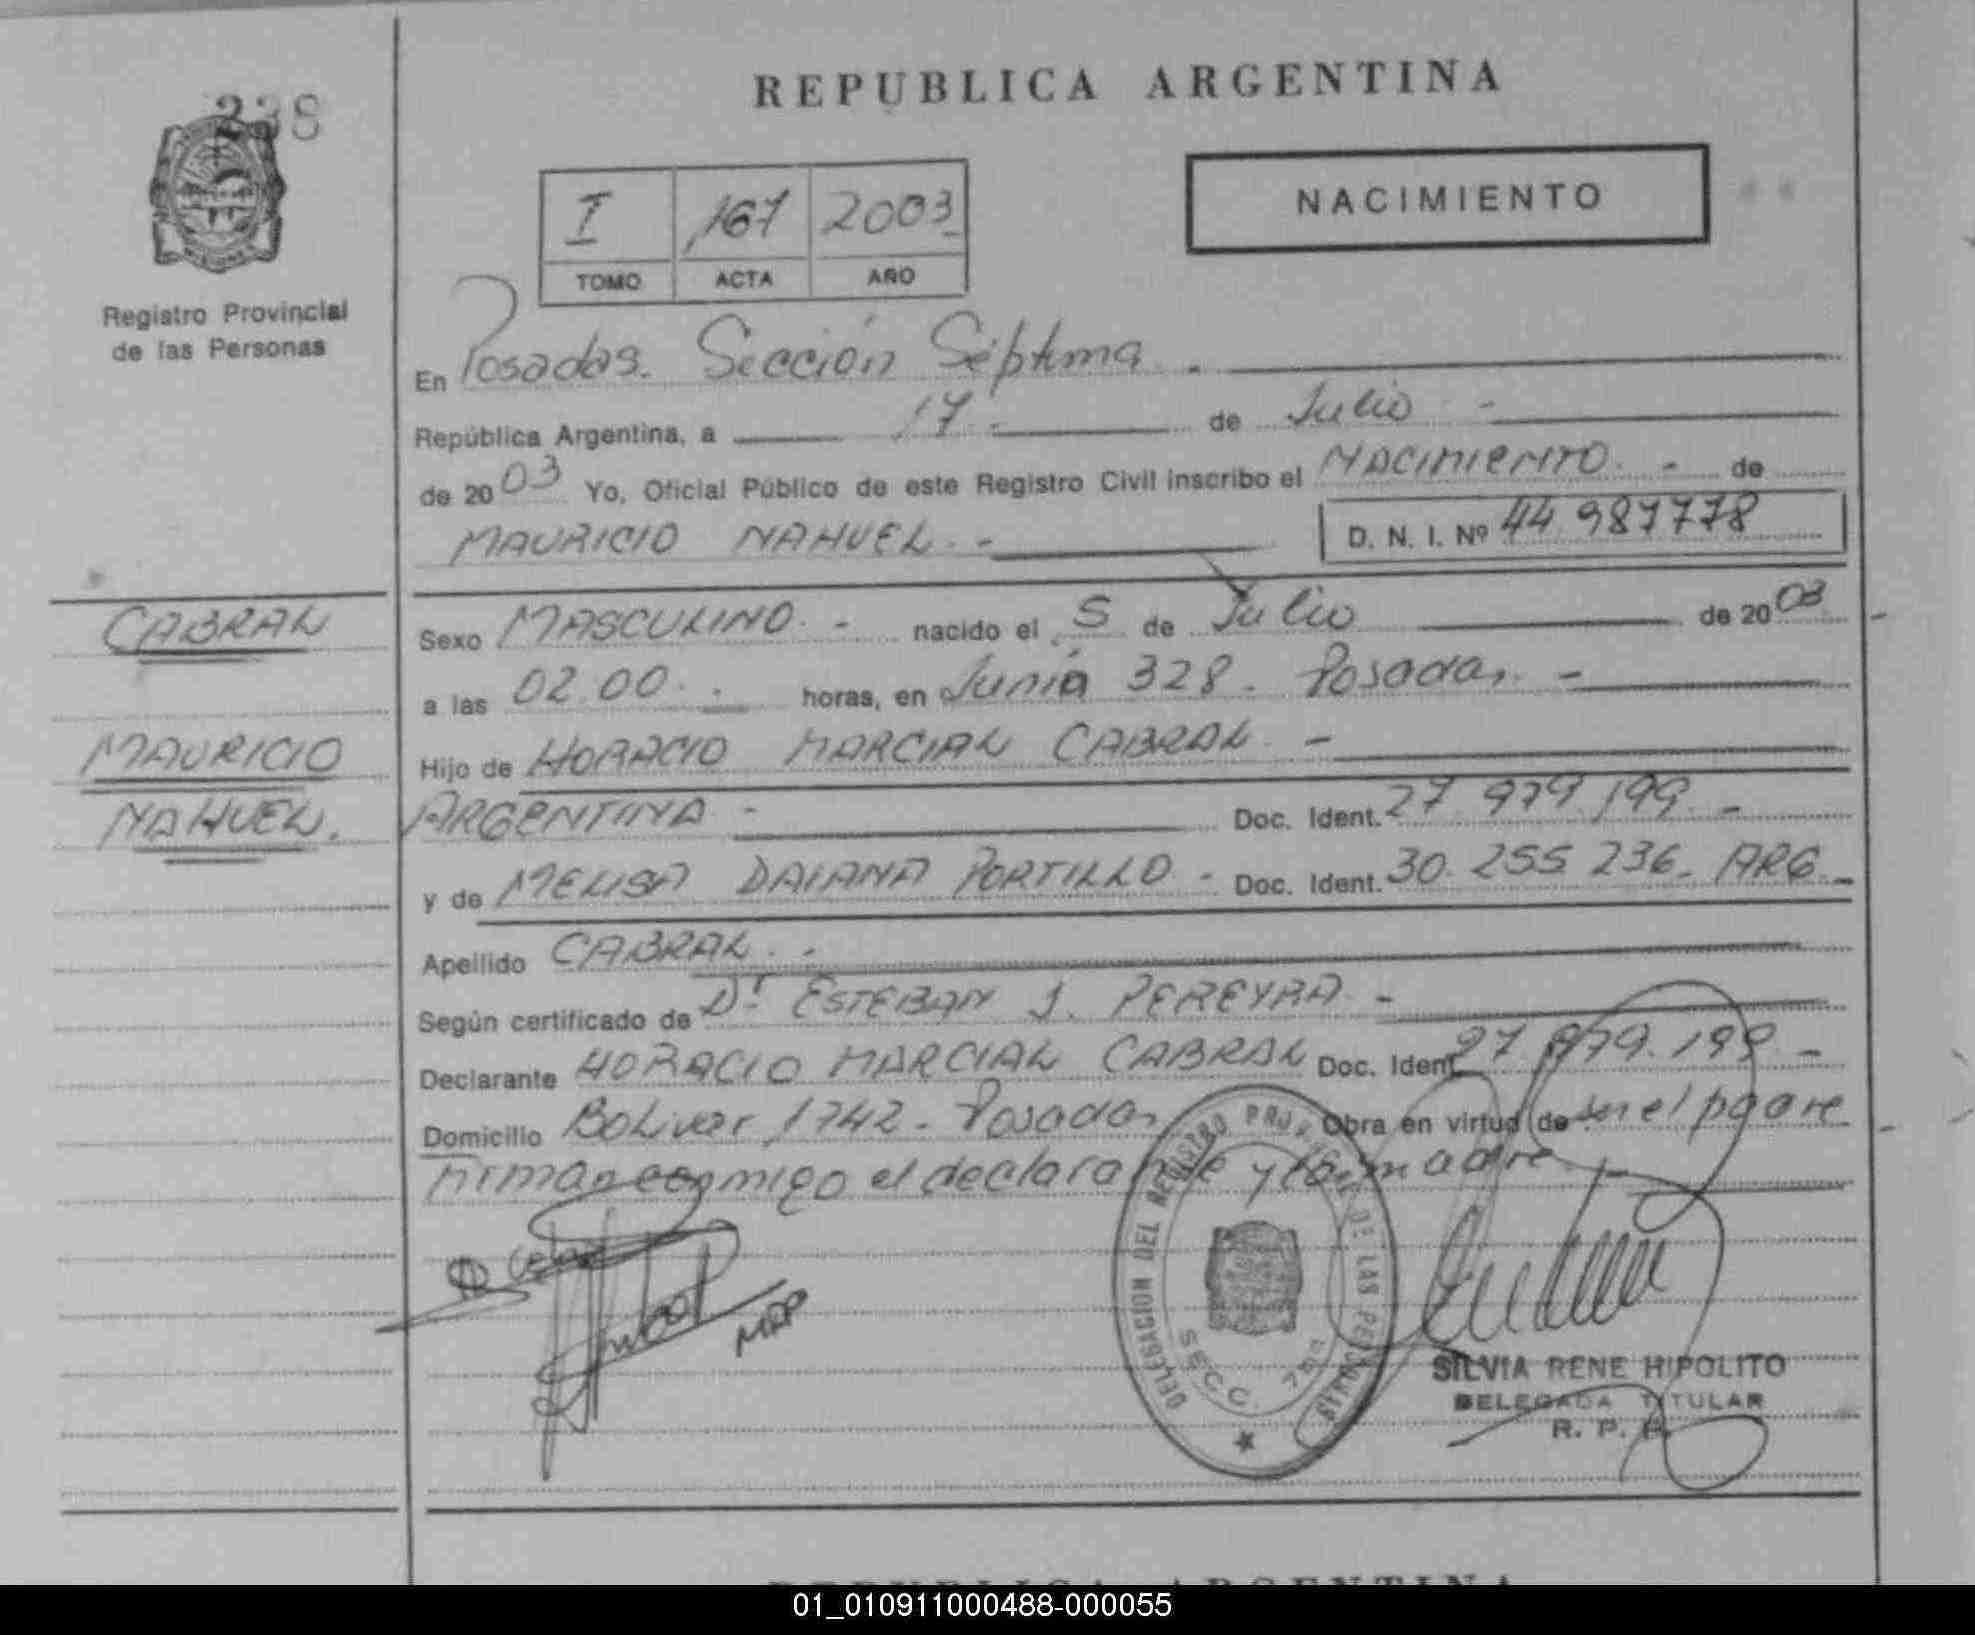 238
REPUBLICA ARGENTINA
I 167 2003
TOMO ACTA AÑO
NACIMIENTO
Registro Provincial
de las Personas
En Posadas. Sección Séptima.
República Argentina, a 17 - de Julio -
de 2003 Yo, Oficial Público de este Registro Civil inscribo el NACIMIENTO. - de
MAURICIO NAHUEL. - D. N. I. Nº 44 987778
CABRAL
Sexo MASCULINO. - nacido el 5 de Julio de 2003
a las 02.00. horas, en Junín 328. Posadas. -
MAURICIO
Hijo de HORACIO MARCIAL CABRAL. -
NAHUEL.
ARGENTINA - Doc. Ident. 27 979 199. -
y de MELISA DAIANA PORTILLO. - Doc. Ident. 30. 255 236. ARG. -
Apellido CABRAL. -
Según certificado de Dr. ESTEBAN J. PEREYRA. -
Declarante HORACIO MARCIAL CABRAL Doc. Ident. 27 979.199 -
Domicilio Bolivar 1742. Posadas Obra en virtud de ser el padre
firman conmigo el declarante y la madre.
DELEGACION DEL REGISTRO PROVINCIAL DE LAS PERSONAS
SECC. 7ma
SILVIA RENE HIPOLITO
DELEGADA TITULAR
R. P. P.
REPUBLICA ARGENTINA
01_010911000488-000055